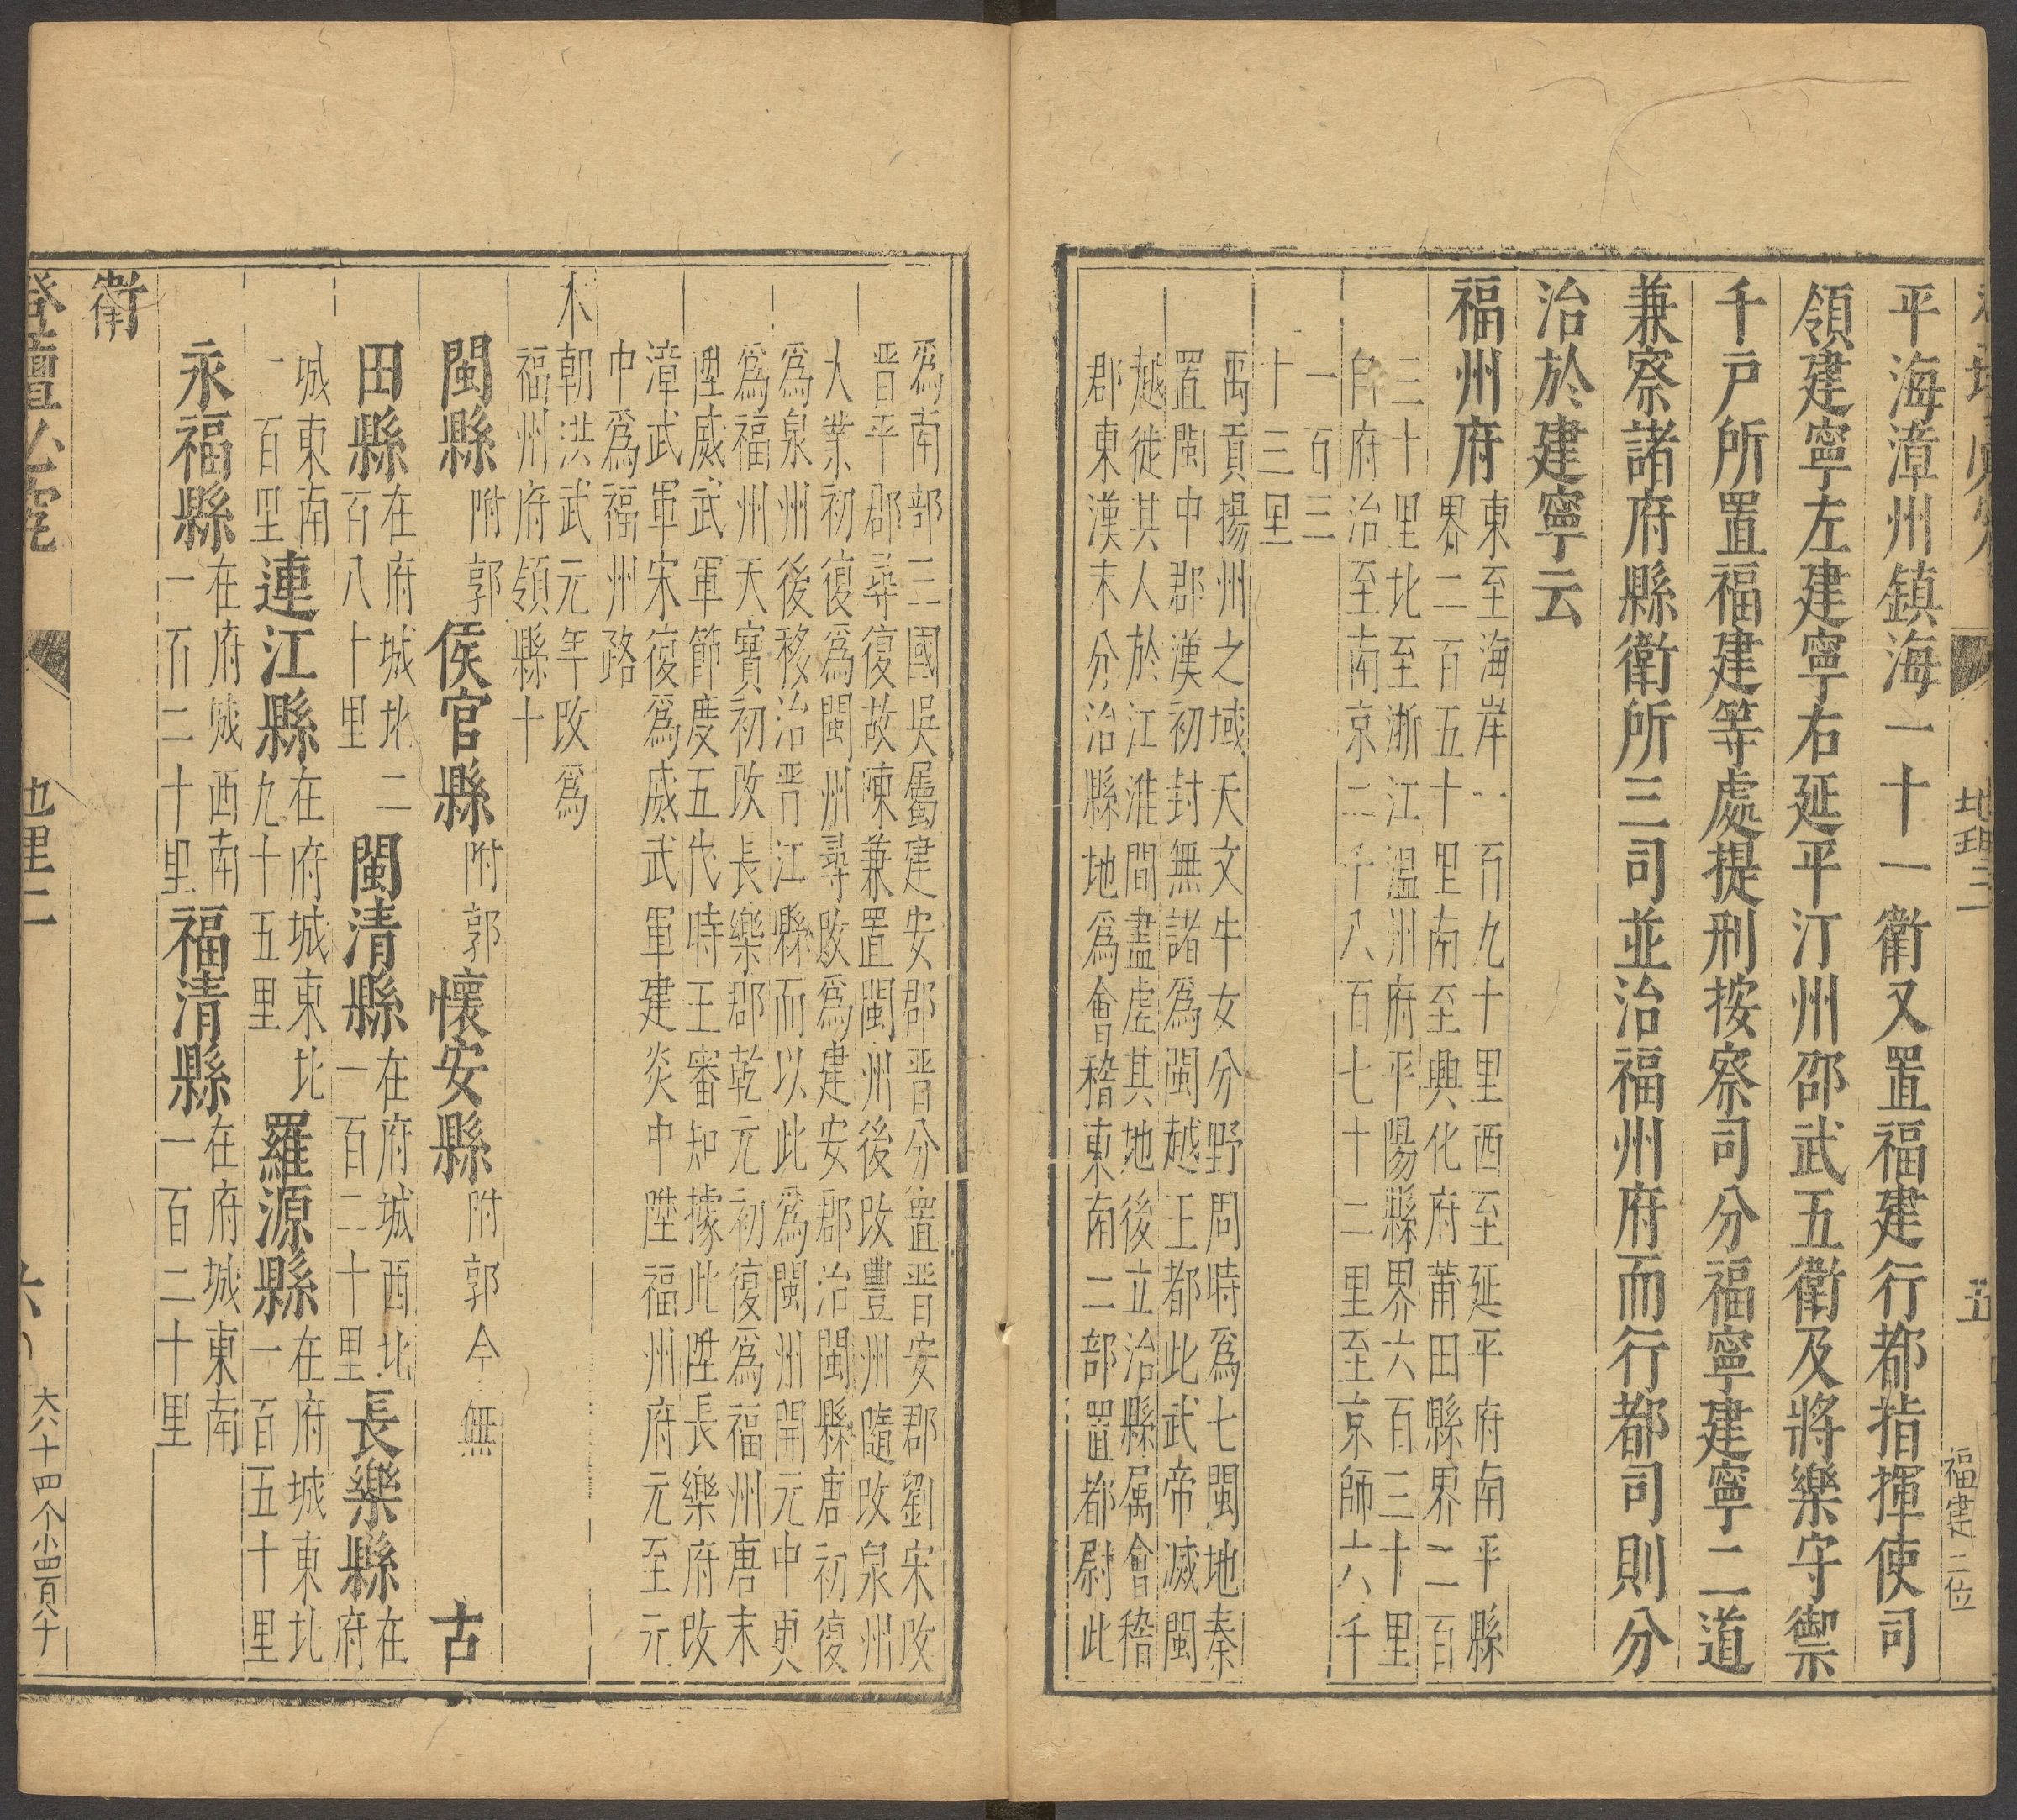 地理二
五
福建二位
平海漳州鎮海一十一衛又置福建行都指揮使司
領建寧左建寧右延平汀州邵武五衛及將樂守禦
千戸所置福建等處提刑按察司分福寧建寧二道
兼察諸府縣衛所三司並治福州府而行都司則分
治於建寧云
福州府
東至海岸一百九十里西至延平府南平縣
界二百五十里南至興化府莆田縣界二百
三十里北至浙江溫州府平陽縣界六百三十里
自府治至南京二千八百七十二里至京師六千
一百三
十三里
禹貢揚州之域天文牛女分野周時爲七閩地秦
置閩中郡漢初封無諸爲閩越王都此武帝滅閩
越徙其人於江淮間盡虛其地後立治縣属會稽
郡東漢末分治縣地爲會稽東南二部置都尉此
爲南部三國吳屬建安郡晋分置晋安郡劉宋改
晋平郡尋復故陳兼置閩州後改豐州隨改泉州
大業初復爲閩州尋改爲建安郡治閩縣唐初復
爲泉州後移治晋江縣而以此爲閩州開元中更
爲福州天寳初改長樂郡乾元初復爲福州唐末
陞威武軍節度五代時王審知據此陞長樂府改
漳武軍宋復爲威武軍建炎中陞福州府元至元
中爲福州路
本朝洪武元年改爲
福州府領縣十
閩縣附郭侯官縣附郭懷安縣附郭今無古
田縣在府城北二百八十里閩清縣在府城西北一百二十里長樂縣在府
城東南一百里連江縣在府城東北九十五里羅源縣在府城東北一百五十里
永福縣在府城西南一百二十里福清縣在府城東南一百二十里
衛
地理二
六
大六十四个小四百八十